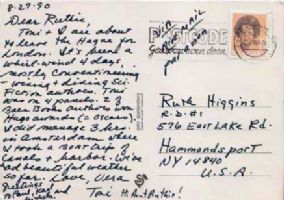 8-29-90
Dear Ruthie,
Toni & I are about
to leave the Hague for
London. It's been a
whirl-wind 4 days,
mostly conventioneering
+ wining + dining Sci
Fiction authors. Toni
was on 4 panels. 2 of
Baen Books authors won
Hugo awards (= oscars).
I did manage 3 hrs.
in Amsterdam where
I took a boat trip of
Canals + harbor. We've
had beautiful weather
so far. Love, Vera
Greetings
to Paul, Kay and
Toni Hi Aunt Ruthie!
Via
Airmail
par avion
POSTCODE
Goed geschreven doen
Ruth Higgins
R.D. #1
576 East Lake Rd.
Hammondsport
NY 14840
U.S.A.